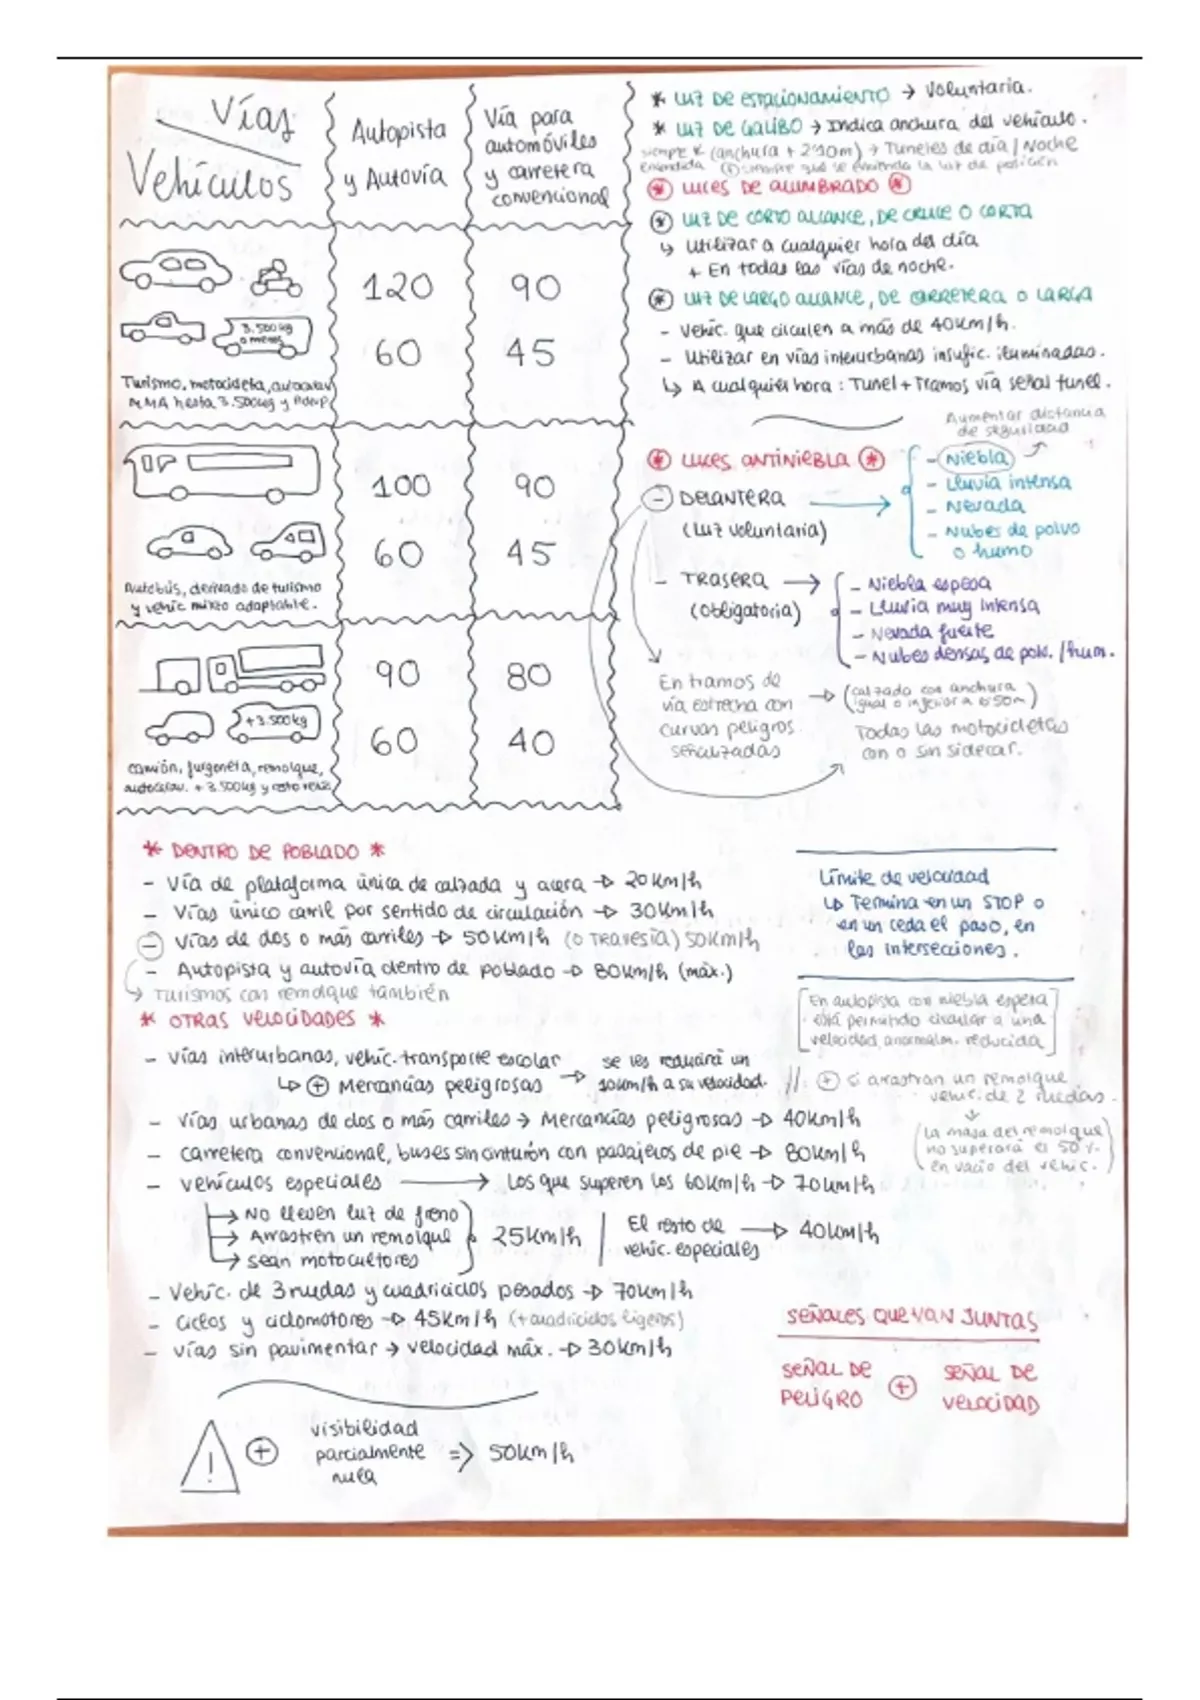 Vías
Vehículos
Autopista
y Autovía
Vía para
automóviles
y carretera
convencional
120
90
3.500kg
o menos
60
45
Turismo, motocicleta, autocarav
MMA hasta 3.500kg y Pickup
100
90
60
45
Autobús, derivado de turismo
y vehic mixto adaptable.
90
80
+3.500kg
60
40
camión, furgoneta, remolque,
autocarav. + 3.500kg y resto vehic
* LUZ DE ESTACIONAMIENTO → Voluntaria.
* LUZ DE GALIBO → Indica anchura del vehículo.
siempre * (anchura + 2'10m) → Tuneles de día / Noche
encendida (+) siempre que se encienda la luz de posición
* LUCES DE ALUMBRADO *
* LUZ DE CORTO ALCANCE, DE CRUCE O CORTA
↳ Utilizar a cualquier hora del día
+ En todas las vías de noche.
* LUZ DE LARGO ALCANCE, DE CARRETERA O LARGA
- Vehic. que circulen a más de 40km/h.
- Utilizar en vías interurbanas insufic. iluminadas.
↳ A cualquier hora: Tunel + Tramos vía señal tunel.
Aumentar distancia
de seguridad
* LUCES ANTINIEBLA *
- Niebla
- Lluvia intensa
- Nevada
- Nubes de polvo
o humo
- DELANTERA →
(Luz voluntaria)
- TRASERA →
(Obligatoria)
- Niebla espesa
- Lluvia muy intensa
- Nevada fuerte
- Nubes densas de polv. / hum.
En tramos de
vía estrecha con
curvas peligros.
señalizadas
→ (calzada con anchura
igual o inferior a 6'50m)
Todas las motocicletas
con o sin sidecar.
* DENTRO DE POBLADO *
- Vía de plataforma única de calzada y acera → 20km/h
- Vías único carril por sentido de circulación → 30km/h
- Vías de dos o más carriles → 50km/h (o TRAVESÍA) 50km/h
- Autopista y autovía dentro de poblado → 80km/h (máx.)
↳ Turismos con remolque también
Límite de velocidad
↳ Termina en un STOP o
en un ceda el paso, en
las intersecciones.
[En autopista con niebla espesa
está permitido circular a una
velocidad anormalm. reducida]
* OTRAS VELOCIDADES *
- Vías interurbanas, vehic. transporte escolar
↳ + Mercancías peligrosas →
se les reducirá un
10km/h a su velocidad.
// + si arrastran un remolque
vehic. de 2 ruedas.
↓
(La masa del remolque
no superará el 50%
en vacío del vehic.)
- Vías urbanas de dos o más carriles → Mercancías peligrosas → 40km/h
- Carretera convencional, buses sin cinturón con pasajeros de pie → 80km/h
- Vehículos especiales → Los que superen los 60km/h → 70km/h
→ No lleven luz de freno
→ Arrastren un remolque
→ sean motocultores
25km/h
El resto de
vehic. especiales
→ 40km/h
- Vehíc. de 3 ruedas y cuadriciclos pesados → 70km/h
- Ciclos y ciclomotores → 45km/h (+ cuadriciclos ligeros)
- Vías sin pavimentar → velocidad máx. → 30km/h
SEÑALES QUE VAN JUNTAS
SEÑAL DE
PELIGRO
+
SEÑAL DE
VELOCIDAD
!
+
visibilidad
parcialmente
nula
=> 50km/h